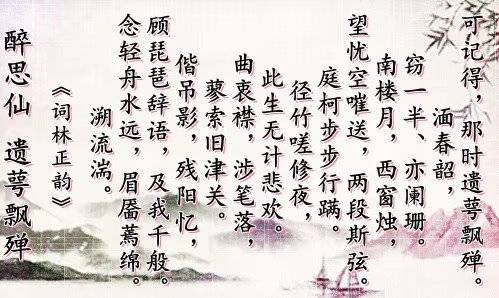 醉思仙 遗萼飘殚
《词林正韵》
溯流湍。
念轻舟水远，眉靥蔫绵。
顾琵琶辞语，及我千般。
偕吊影，残阳忆，
蓼索旧津关。
曲衷襟，涉笔落，
此生无计悲欢。
径竹嗟修夜，
庭柯步步行蹒。
望忧空嗺送，两段斯弦。
南楼月，西窗烛，
窃一半、亦阑珊。
湎春韶，
可记得，那时遗萼飘殚。